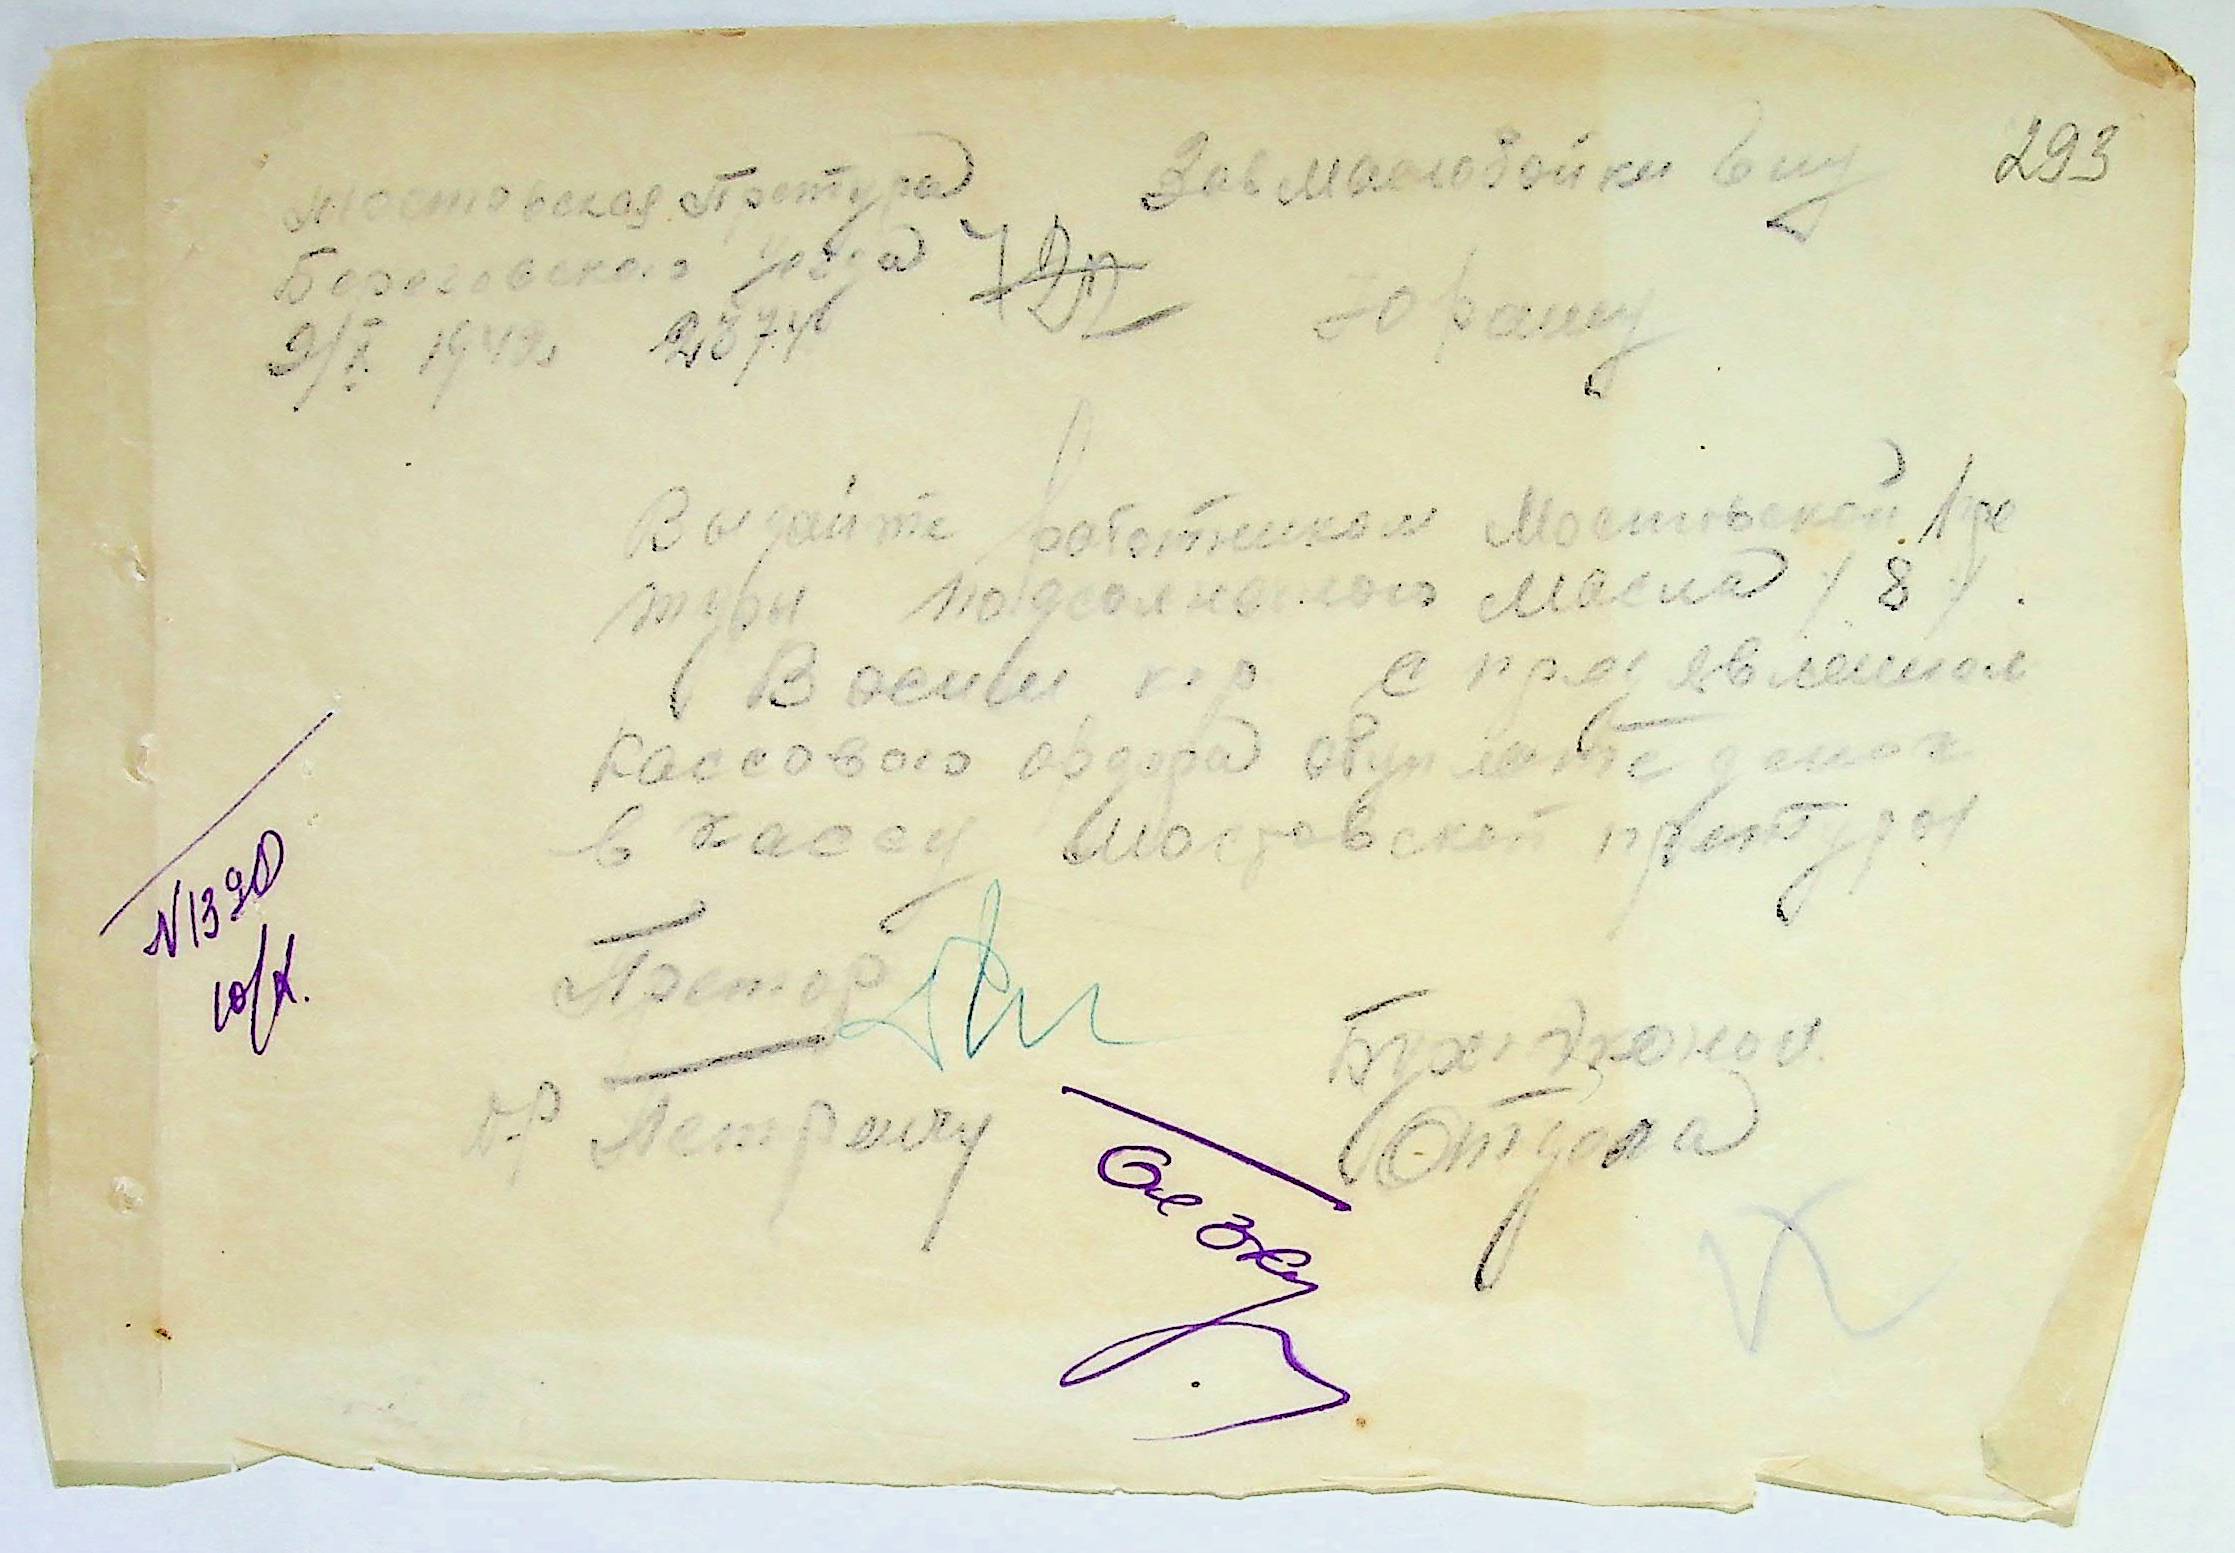 293
Мостовская Претура
Береговского уезда
9/X 1942г
Зав маслобойки
Юрашу
Выдайте работникам Мостовской пре
туры подсолнечного масла / 8 /.
Восим кгр с предявлением
кассового ордера о уплате денег
в кассу Мостовской претуры
Претор
Д-р Петрашу
Бухг Эконом.
Отдела
N 1390
10/X.